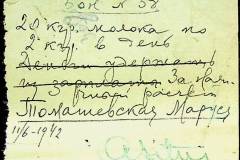 Бон № 58
20 кгр. молока по
2 кгр. в день
Деньги удержать
из зарплаты За нал.
расчет
Томашевская Маруся
11/6-1942